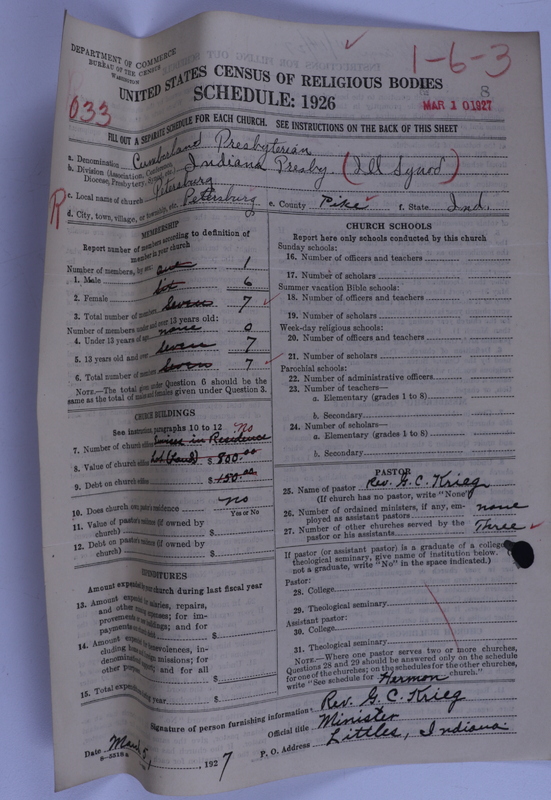 DEPARTMENT OF COMMERCE
BUREAU OF THE CENSUS
WASHINGTON
1-6-3
8
UNITED STATES CENSUS OF RELIGIOUS BODIES
SCHEDULE: 1926
MAR 10 1927
033
FILL OUT A SEPARATE SCHEDULE FOR EACH CHURCH. SEE INSTRUCTIONS ON THE BACK OF THIS SHEET
a. Denomination Cumberland Presbyterian
b. Division (Association, Conference, Diocese, Presbytery, Synod, etc.) Indiana Presby. (Ill Synod)
c. Local name of church Petersburg
R
d. City, town, village, or township, etc. Petersburg e. County Pike f. State Ind.
MEMBERSHIP
Report number of members according to definition of
member in your church
Number of members, by sex:
1. Male one 1
2. Female six 6
3. Total number of members seven 7
Number of members under and over 13 years old:
4. Under 13 years of age none 0
5. 13 years old and over seven 7
6. Total number of members seven 7
NOTE.—The total given under Question 6 should be the
same as the total of males and females given under Question 3.
CHURCH BUILDINGS
See instructions, paragraphs 10 to 12 No
7. Number of church edifices Services in Residence
8. Value of church edifices Lot (Land) $ 800.00
9. Debt on church edifices $ 150.00
10. Does church own pastor's residence No
Yes or No
11. Value of pastor's residence (if owned by
church) $
12. Debt on pastor's residence (if owned by
church) $
EXPENDITURES
Amount expended by your church during last fiscal year
13. Amount expended for salaries, repairs,
and other running expenses; for im-
provements or new buildings; and for
payments on church debt $
14. Amount expended for benevolences, in-
cluding home and foreign missions; for
denominational support; and for all
other purposes $
15. Total expenditures during year $
CHURCH SCHOOLS
Report here only schools conducted by this church
Sunday schools:
16. Number of officers and teachers
17. Number of scholars
Summer vacation Bible schools:
18. Number of officers and teachers
19. Number of scholars
Week-day religious schools:
20. Number of officers and teachers
21. Number of scholars
Parochial schools:
22. Number of administrative officers
23. Number of teachers—
a. Elementary (grades 1 to 8)
b. Secondary
24. Number of scholars—
a. Elementary (grades 1 to 8)
b. Secondary
PASTOR
25. Name of pastor Rev. G. C. Krieg
(If church has no pastor, write "None")
26. Number of ordained ministers, if any, em-
ployed as assistant pastors none
27. Number of other churches served by the
pastor or his assistants Three
If pastor (or assistant pastor) is a graduate of a college or
theological seminary, give name of institution below. (If
not a graduate, write "No" in the space indicated.)
Pastor:
28. College
29. Theological seminary
Assistant pastor:
30. College
31. Theological seminary
NOTE.—Where one pastor serves two or more churches,
Questions 28 and 29 should be answered only on the schedule
for one of the churches; on the schedules for the other churches,
write "See schedule for Hermon church."
Signature of person furnishing information Rev. G. C. Krieg
Official title Minister
Date March 5, 1927 P. O. Address Littles, Indiana
8-5518a